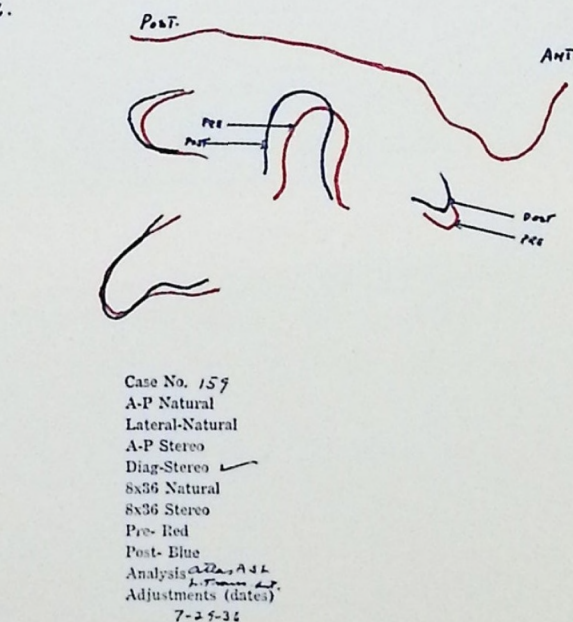 POST.
ANT
PRE
POST
POST
PRE
Case No. 159
A-P Natural
Lateral-Natural
A-P Stereo
Diag-Stereo
8x36 Natural
8x36 Stereo
Pre- Red
Post- Blue
Analysis Atlas ASL
Adjustments (dates)